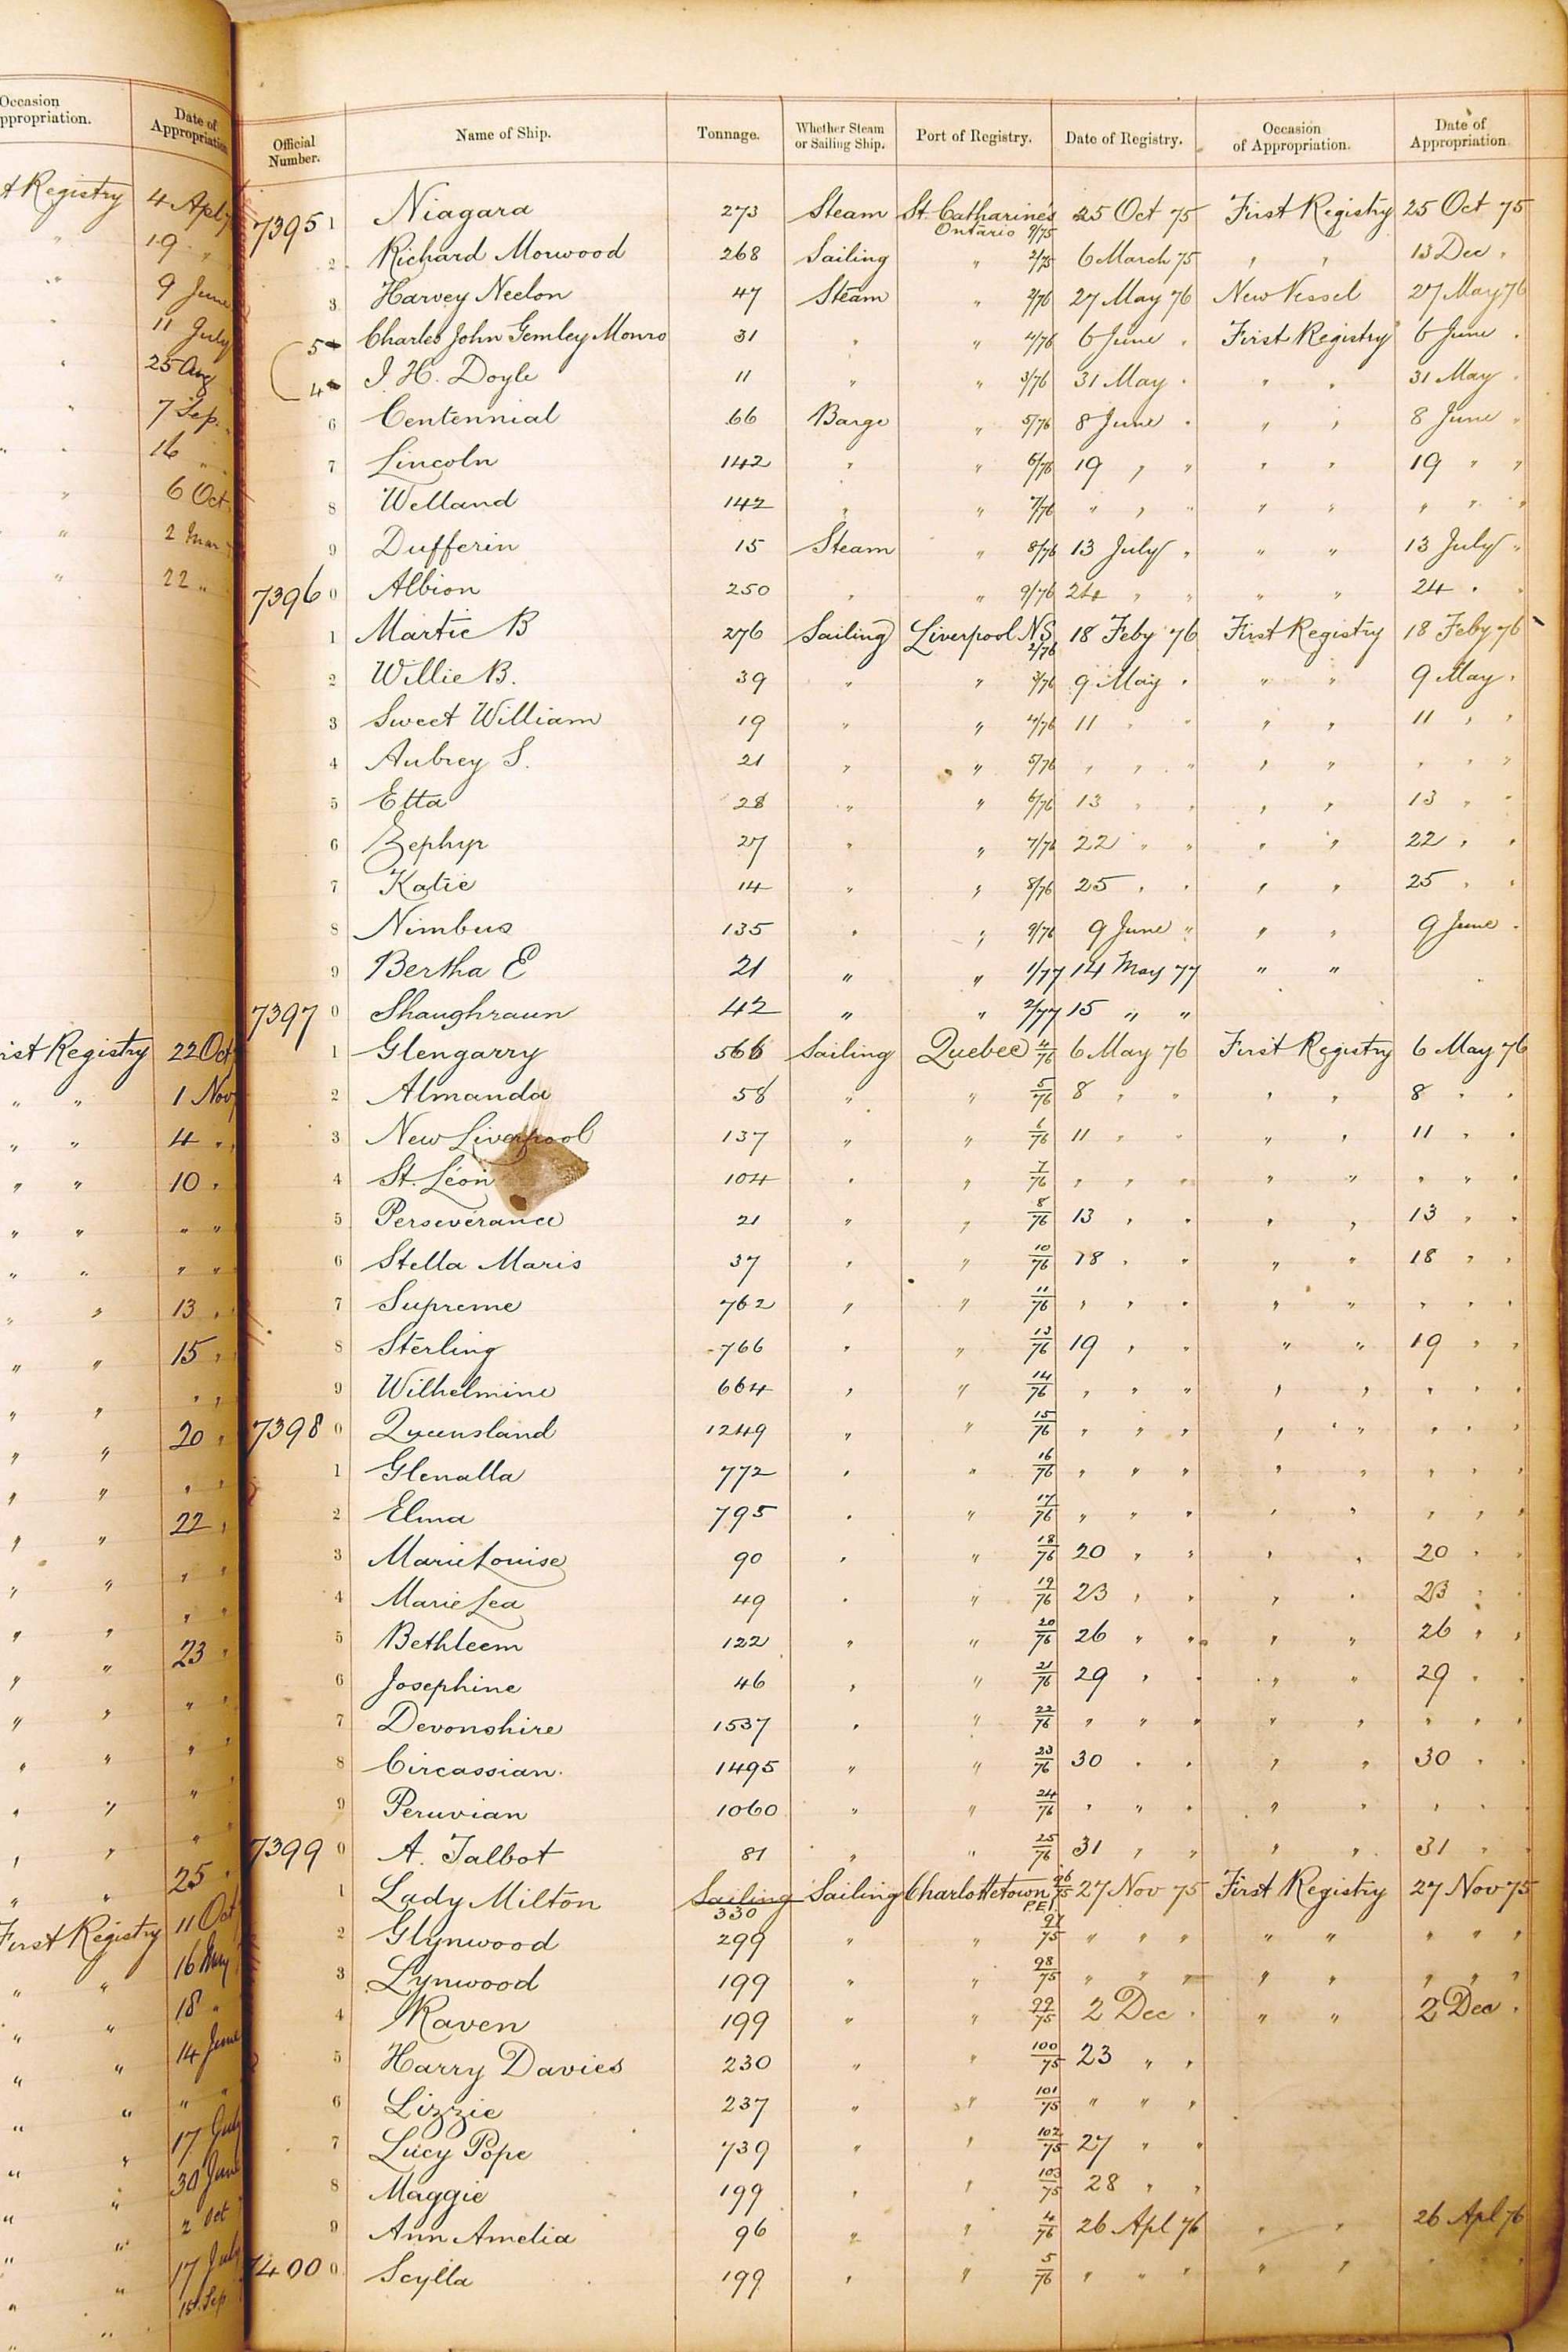 Occasion
ppropriation.
Date of
Appropriation
t Registry 4 Apl
" 19 "
" 9 June
" 11 July
" 25 Aug
" 7 Sep.
" " 16 "
" 6 Oct
" 2 Mar
" 22 "
ist Registry 22 Oct
" " 1 Nov
" " 4 "
" " 10 "
" " " "
" " " "
" " 13 "
" " 15 "
" " " "
" " 20 "
" " " "
" " 22 "
" " " "
" " " "
" " 23 "
" " " "
" " "
" " "
" " "
" " 25 "
First Registry 11 Oct
" " 16 May
" " 18 "
" " 14 June
" " " "
" " 17 July
" " 30 June
" " 2 Oct
" " 17 July
" " 15 Sep
Official Number. Name of Ship. Tonnage. Whether Steam or Sailing Ship. Port of Registry. Date of Registry. Occasion of Appropriation. Date of Appropriation
7395 1 Niagara 273 Steam St. Catharine's Ontario 9/75 25 Oct 75 First Registry 25 Oct 75
2 Richard Morwood 268 Sailing " 2/75 6 March 75 " " 13 Dec "
3 Harvey Neelon 47 Steam " 2/76 27 May 76 New Vessel 27 May 76
5 Charles John Gemley Monro 31 " " 4/76 6 June " First Registry 6 June "
4 J. H. Doyle 11 " " 3/76 31 May " " " 31 May "
6 Centennial 66 Barge " 5/76 8 June " " " 8 June "
7 Lincoln 142 " " 6/76 19 " " " " 19 " "
8 Welland 142 " " 7/76 " " " " " " " "
9 Dufferin 15 Steam " 8/76 13 July " " " 13 July "
7396 0 Albion 250 " " 9/76 24 " " " " 24 " "
1 Martie B 276 Sailing Liverpool NS 2/76 18 Feby 76 First Registry 18 Feby 76
2 Willie B. 39 " " 3/76 9 May " " " 9 May "
3 Sweet William 19 " " 4/76 11 " " " " 11 " "
4 Aubrey S. 21 " " 5/76 " " " " " " " "
5 Etta 28 " " 6/76 13 " " " " 13 " "
6 Zephyr 27 " " 7/76 22 " " " " 22 " "
7 Katie 14 " " 8/76 25 " " " " 25 " "
8 Nimbus 135 " " 9/76 9 June " " " 9 June "
9 Bertha E 21 " " 1/77 14 May 77 " "
7397 0 Shaughraun 42 " " 2/77 15 " "
1 Glengarry 566 Sailing Quebec 4/76 6 May 76 First Registry 6 May 76
2 Almanda 58 " " 5/76 8 " " " " 8 " "
3 New Liverpool 137 " " 6/76 11 " " " " 11 " "
4 St. Léon 104 " " 7/76 " " " " " " " "
5 Persevérance 21 " " 8/76 13 " " " " 13 " "
6 Stella Maris 37 " " 10/76 18 " " " " 18 " "
7 Supreme 762 " " 11/76 " " " " " " " "
8 Sterling 766 " " 13/76 19 " " " " 19 " "
9 Wilhelmine 664 " " 14/76 " " " " " " " "
7398 0 Queensland 1249 " " 15/76 " " " " " " " "
1 Glenalla 772 " " 16/76 " " " " " " " "
2 Elma 795 " " 17/76 " " " " " " " "
3 Marie Louise 90 " " 18/76 20 " " " " 20 " "
4 Marie Lea 49 " " 19/76 23 " " " " 23 " "
5 Bethleem 122 " " 20/76 26 " " " " 26 " "
6 Josephine 46 " " 21/76 29 " " " " 29 " "
7 Devonshire 1537 " " 22/76 " " " " " " " "
8 Circassian 1495 " " 23/76 30 " " " " 30 " "
9 Peruvian 1060 " " 24/76 " " " " " " " "
7399 0 A. Talbot 81 " " 25/76 31 " " " " 31 " "
1 Lady Milton Sailing 330 Sailing Charlottetown P.E.I. 96/75 27 Nov 75 First Registry 27 Nov 75
2 Glynwood 299 " " 97/75 " " " " " " " "
3 Lynwood 199 " " 98/75 " " " " " " " "
4 Raven 199 " " 99/75 2 Dec " " " 2 Dec "
5 Harry Davies 230 " " 100/75 23 " "
6 Lizzie 237 " " 101/75 " " "
7 Lucy Pope 739 " " 102/75 27 " "
8 Maggie 199 " " 103/75 28 " "
9 Ann Amelia 96 " " 4/76 26 Apl 76 " " 26 Apl 76
7400 0 Scylla 199 " " 5/76 " " " " " " " "